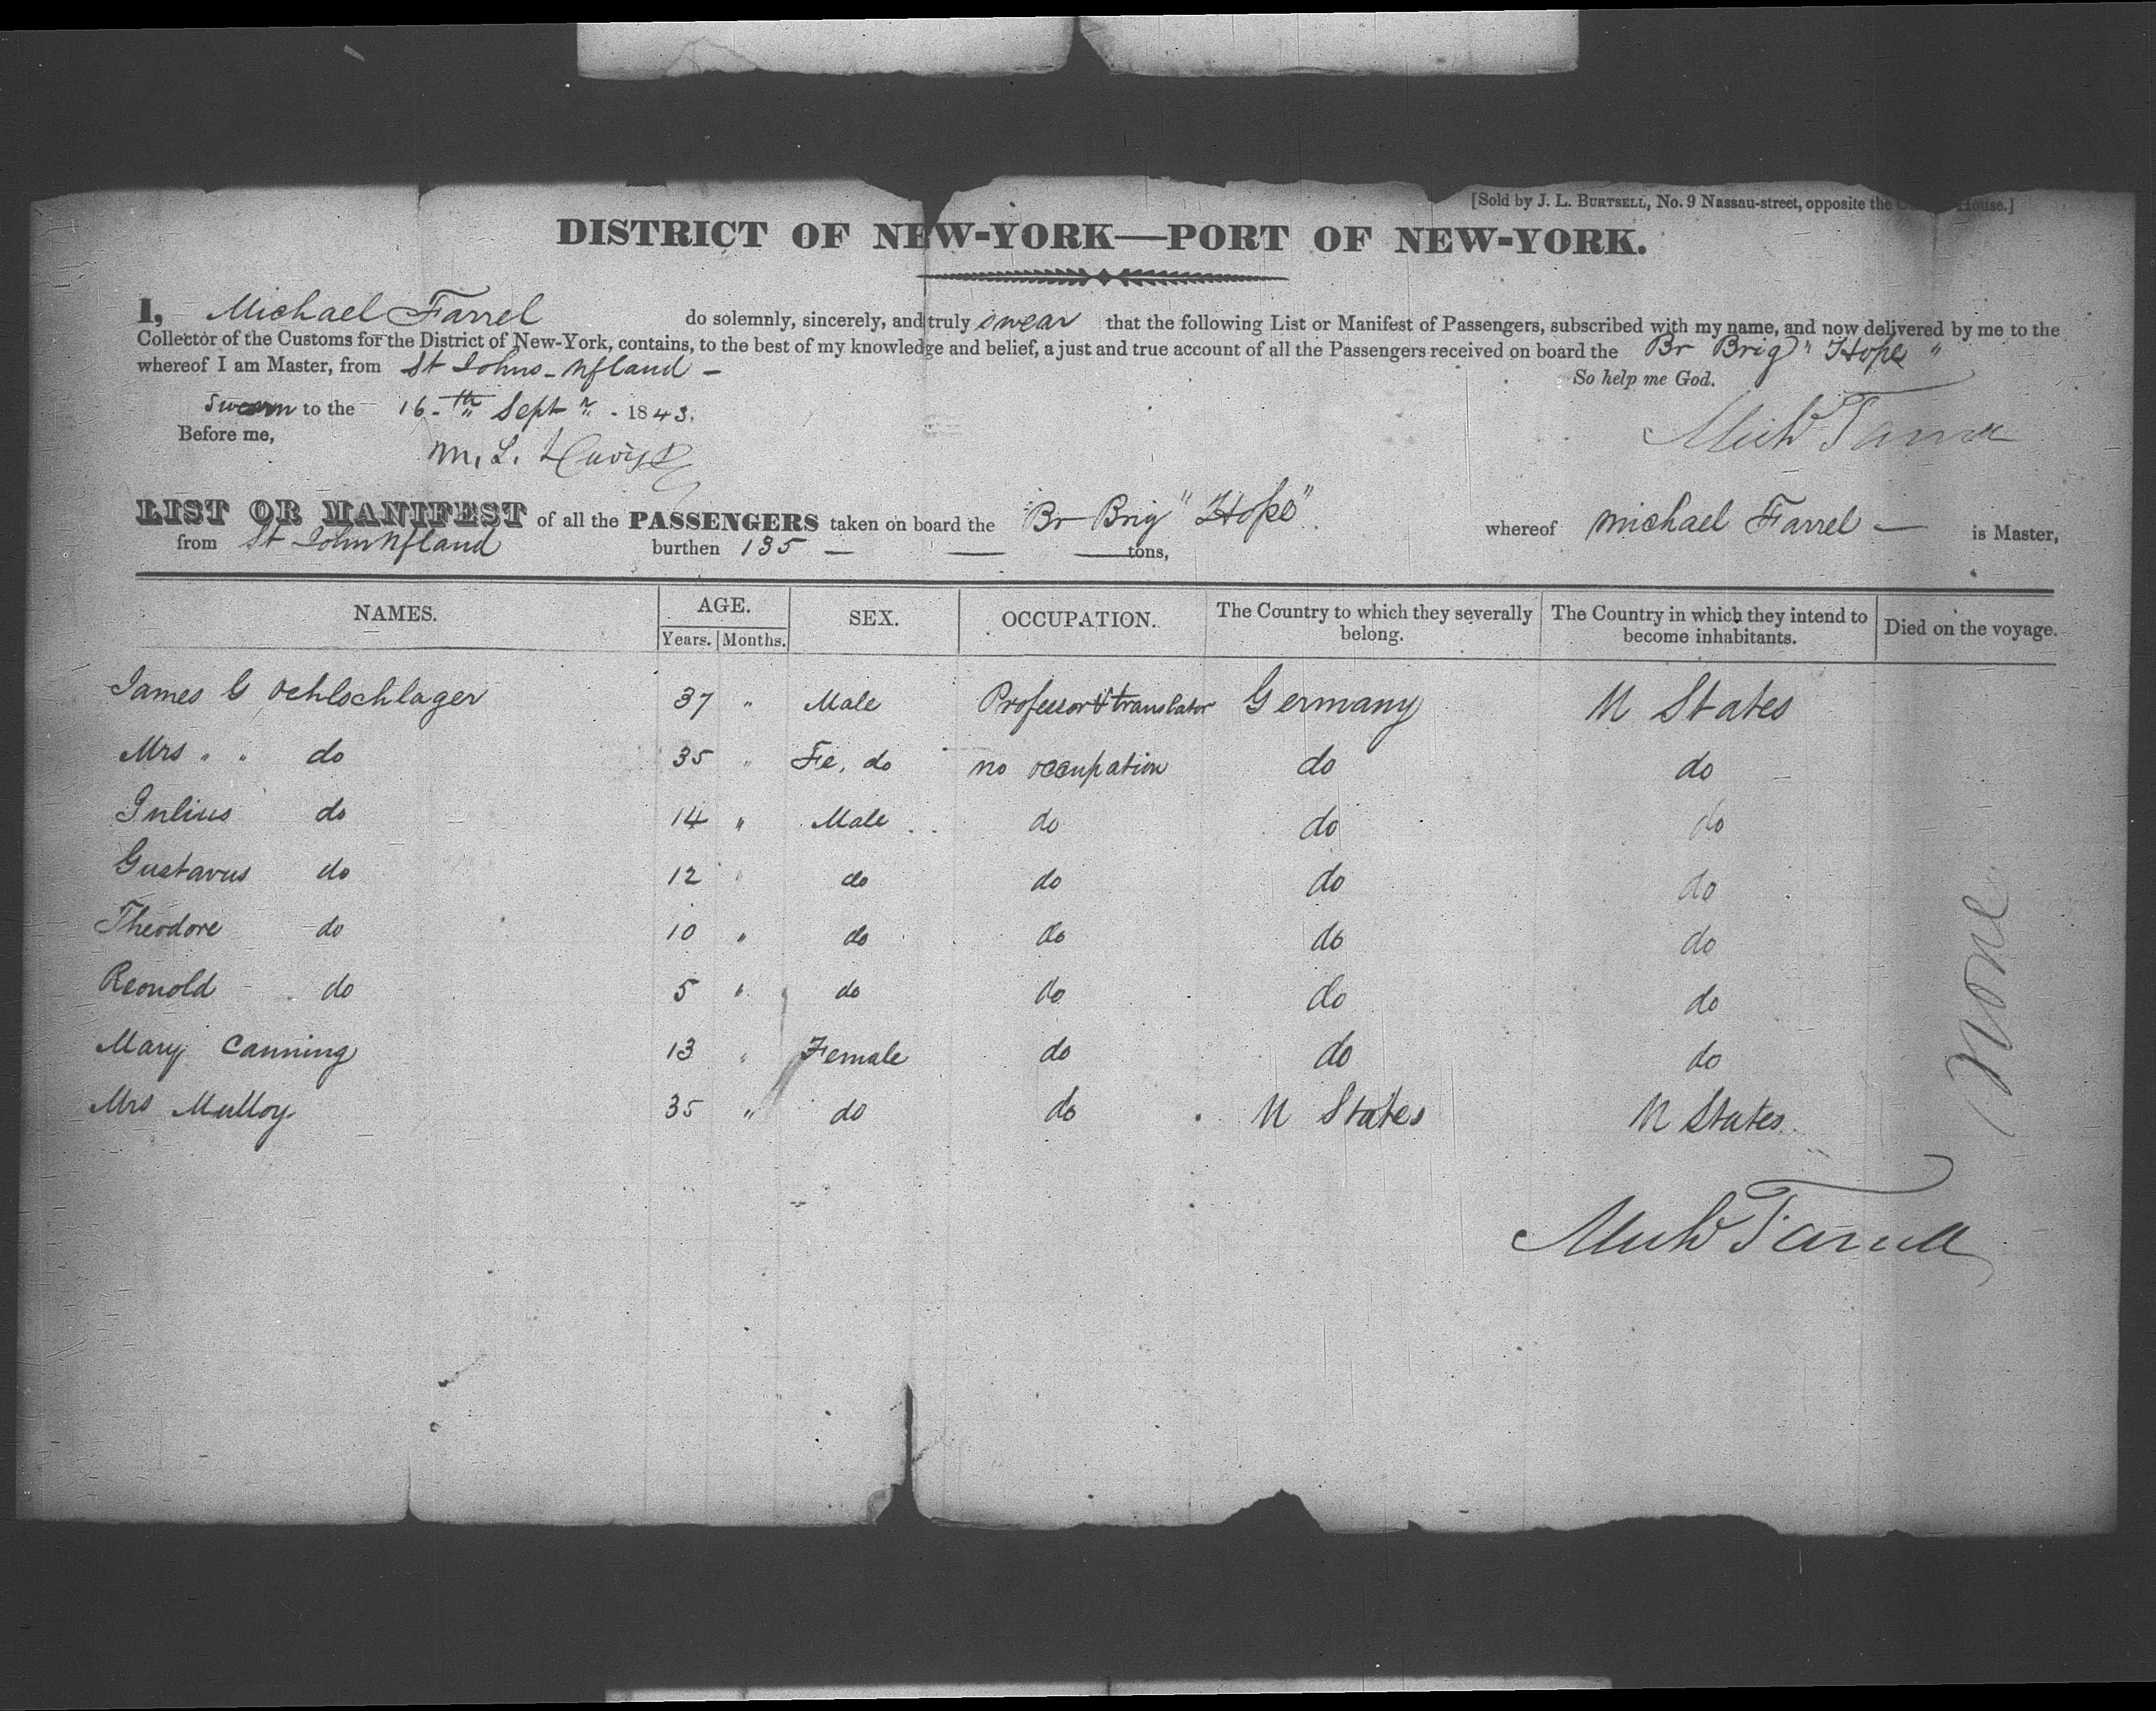 [Sold by J. L. BURTSELL, No. 9 Nassau-street, opposite the House.]
DISTRICT OF NEW-YORK—PORT OF NEW-YORK.
I, Michael Farrel do solemnly, sincerely, and truly swear that the following List or Manifest of Passengers, subscribed with my name, and now delivered by me to the
Collector of the Customs for the District of New-York, contains, to the best of my knowledge and belief, a just and true account of all the Passengers received on board the Br Brig "Hope"
whereof I am Master, from St Johns - Nfland -
So help me God.
Sworn to the 16th Sept 1843.
Michl Farrell
Before me,
M. L.
LIST OR MANIFEST of all the PASSENGERS taken on board the Br Brig "Hope". whereof Michael Farrel — is Master,
from St John Nfland burthen 135 — — — tons,
NAMES. AGE. SEX. OCCUPATION. The Country to which they severally belong. The Country in which they intend to become inhabitants. Died on the voyage.
Years. Months.
James G Oehlschlager 37 " Male Professor & translator Germany U States
Mrs " " do 35 " Fe, do no occupation do do
Julius do 14 " Male do do do
Gustavus do 12 " do do do do
Theodore do 10 " do do do do
Reonold do 5 " do do do do
Mary Canning 13 " Female do do do
Mrs Mulloy 35 " do do U States U States
None
Michl Farrell